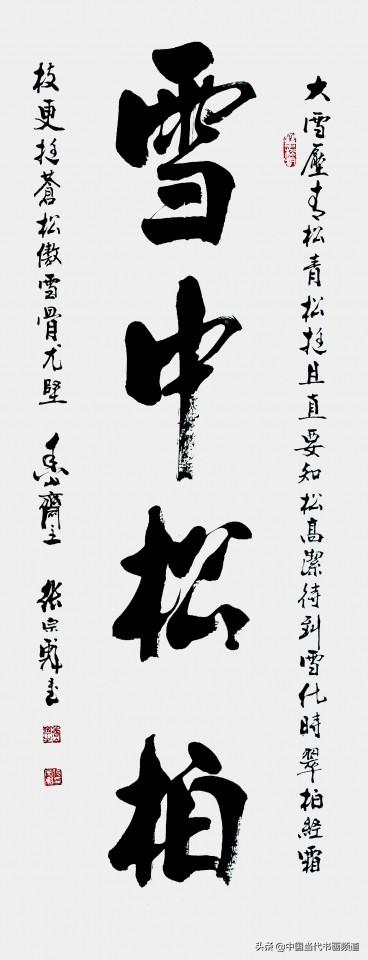 雪中松柏
大雪壓青松青松挺且直要知松高潔待到雪化時翠柏經霜
枝更挺蒼松傲雪骨尤堅 山齋主 張宗書
头条 @中国当代书画频道